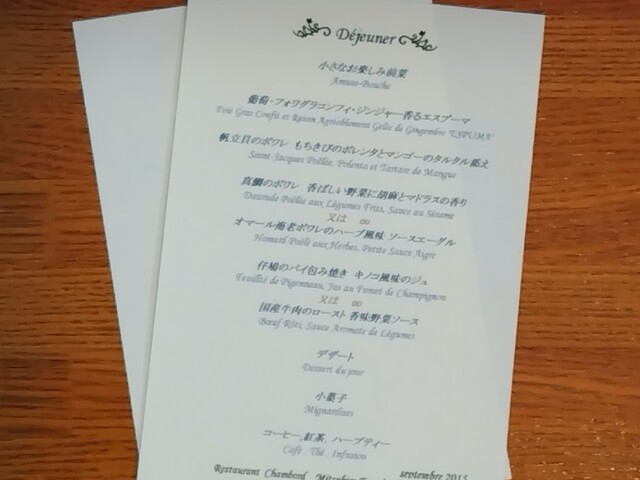 Déjeuner
小さなお楽しみ前菜
Amuse-Bouche
葡萄・フォワグラコンフィ・ジンジャー香るエスプーマ
Foie Gras Confit et Raisin Agréablement Gelée de Gingembre "ESPUMA"
帆立貝のポワレ もちきびのポレンタとマンゴーのタルタル添え
Saint-Jacques Poêlée, Polenta et Tartare de Mangue
真鯛のポワレ 香ばしい野菜に胡麻とマドラスの香り
Daurade Poêlée aux Légumes Frits, Sauce au Sésame
又は ou
オマール海老ポワレのハーブ風味 ソースエーグル
Homard Poêlé aux Herbes, Petite Sauce Aigre
仔鳩のパイ包み焼き キノコ風味のジュ
Feuilleté de Pigeonneau, Jus au Fumet de Champignon
又は ou
国産牛肉のロースト 香味野菜ソース
Bœuf Rôti, Sauce Aromate de Légumes
デザート
Dessert du jour
小菓子
Mignardises
コーヒー, 紅茶, ハーブティー
Café Thé Infusion
Restaurant Chambord septembre 2015